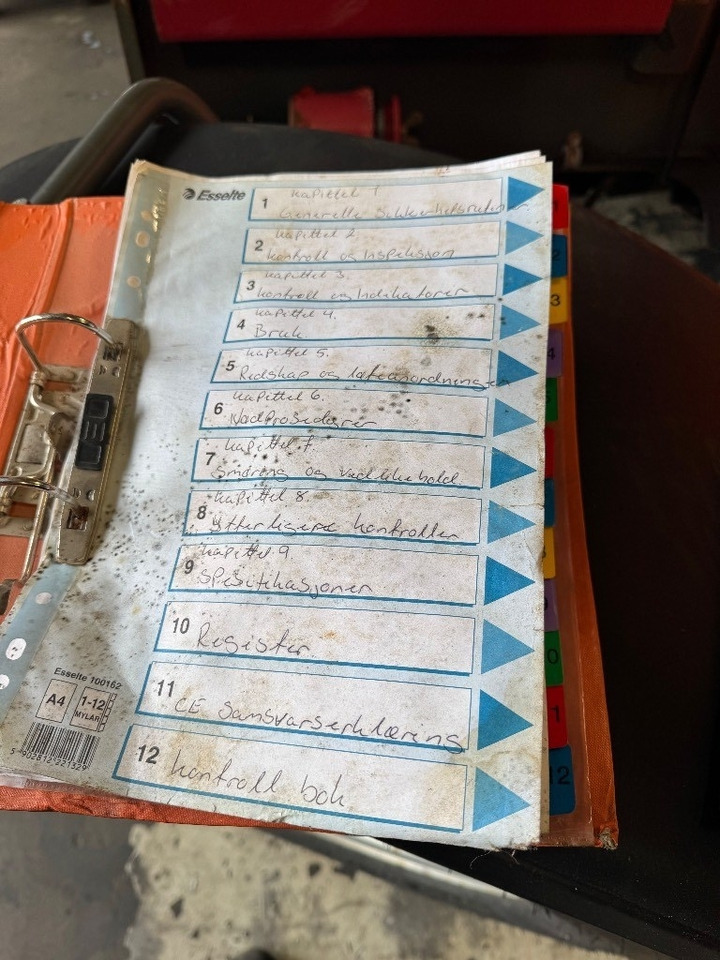 Esselte
1 Kapittel 1
Generelle Sikkerhetsrutiner
2 Kapittel 2
Kontroll og Inspeksjon
3 Kapittel 3.
Kontroll og Indikatorer
4 Kapittel 4.
Bruk
5 Kapittel 5.
Redskap og løfteanordninger
6 Kapittel 6.
Nødprosedyrer
7 Kapittel 7.
Smøring og Vedlikehold
8 Kapittel 8.
Ytterligere Kontroller
9 Kapittel 9.
Spesifikasjoner
10 Register
11 CE Samsvarserklæring
12 Kontroll bok
Esselte 100162
A4
1-12
MYLAR
5 902812 221329
LEO
1
2
3
4
5
0
1
12